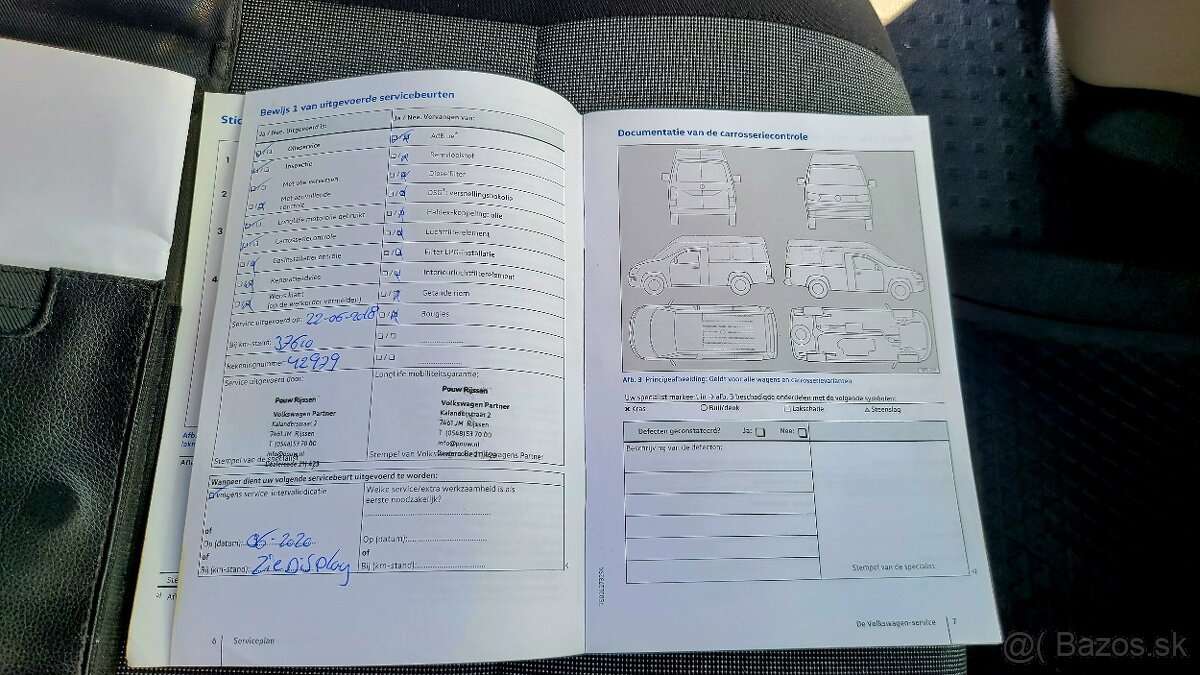 Stic
1
2
3
4
Bewijs 1 van uitgevoerde servicebeurten
Ja / Nee. Uitgevoerd is:
Olieservice
Inspectie
Met olie verversen
Met aanvullende
controle
Longlife motorolie gebruikt
Carrosseriecontrole
Gasinstallatiecontrole
Reparatieadvies
Wens klant
(op de werkorder vermelden)
Service uitgevoerd op: 22-06-2018
Bij km-stand: 37610
Rekeningnummer: 42979
Service uitgevoerd door:
Pouw Rijssen
Volkswagen Partner
Kalanderstraat 2
7461 JM Rijssen
T (0548) 53 70 00
info@pouw.nl
Stempel van de specialist
Dealercode 211 423
Ja / Nee. Vervangen van:
AdBlue
Remvloeistof
Dieselfilter
DSG®: versnellingsbakolie
Haldex-koppeling: olie
Luchtfilterelement
Filter LPG-installatie
Interieurluchtfilterelement
Getande riem
Bougies
Longlife mobiliteitsgarantie:
Pouw Rijssen
Volkswagen Partner
Kalanderstraat 2
7461 JM Rijssen
T (0548) 53 70 00
info@pouw.nl
Stempel van Volkswagen Bedrijfswagens Partner
Wanneer dient uw volgende servicebeurt uitgevoerd te worden:
volgens service-intervalindicatie
of
Op (datum): 06-2020
of
Bij (km-stand): Zie Display
Welke service/extra werkzaamheid is als
eerste noodzakelijk?
Op (datum):
of
Bij (km-stand):
6 Serviceplan
Documentatie van de carrosseriecontrole
Afb. 3 Principeafbeelding: Geldt voor alle wagens en carrosserievarianten
Uw specialist markeert in → afb. 3 beschadigde onderdelen met de volgende symbolen:
× Kras
Buil/deuk
Lakschade
Steenslag
Defecten geconstateerd? Ja: Nee:
Beschrijving van de defecten:
Stempel van de specialist
De Volkswagen-service 7
@( Bazos.sk